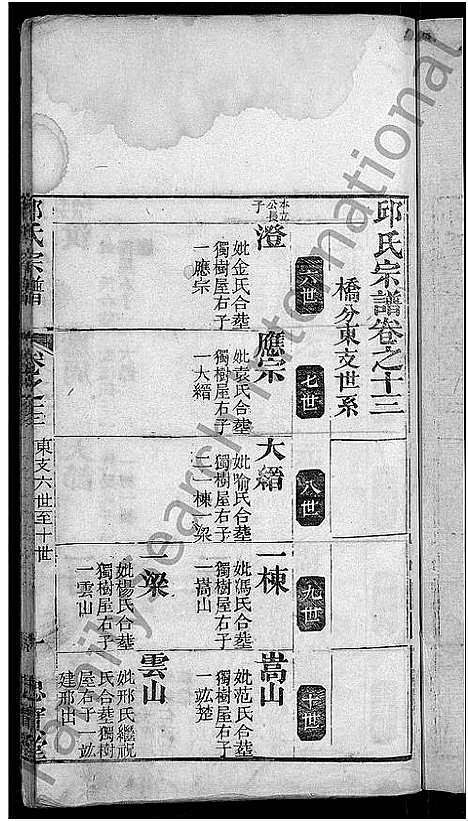 邱氏宗譜卷之十三
橋分東支世系
六世
本立
公長
子
澄
妣金氏合塟
獨樹屋右子
一應宗
七世
應宗
妣袁氏合塟
獨樹屋右子
一大縉
八世
大縉
妣喻氏合塟
獨樹屋右子
二一棟一梁
九世
一棟
妣馮氏合塟
獨樹屋右子
一嵩山
梁
妣楊氏合塟
獨樹屋右子
一雲山
十世
嵩山
妣范氏合塟
獨樹屋右子
一竑楚
雲山
妣邢氏繼祝
氏合塟獨樹
屋右子一竑
建邢出
邱氏宗譜
卷之十三
東支六世至十世
一
FamilySearch International